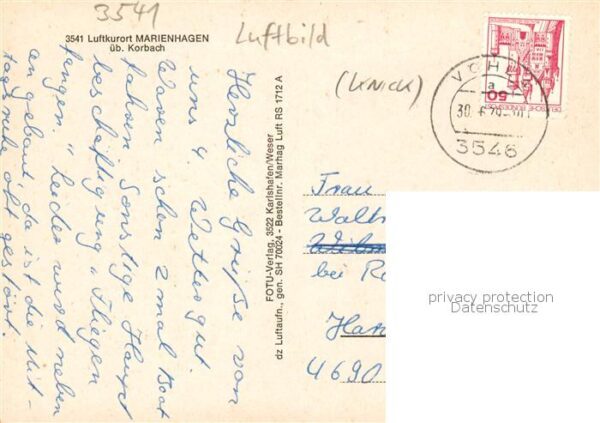 3541
3541 Luftkurort MARIENHAGEN
üb. Korbach
Luftbild
(KNICK)
50
DEUTSCHE BUNDESPOST
VÖHL
a
30.-6.79
3546
Herzliche Grüße von
uns 4 Wetter gut.
Waren schon 2mal Boot
fahren Sonstige Haupt
beschäftigung "Fliegen
fangen." Leider wird neben
an gebaut da ist die Mit-
tagsruhe oft gestört.
FOTU-Verlag, 3522 Karlshafen/Weser
dz Luftaufn., gen. SH 70024 - Bestellnr. Marhag Luft RS 1712 A
Frau
Walt
bei Re
Han
4690
privacy protection
Datenschutz